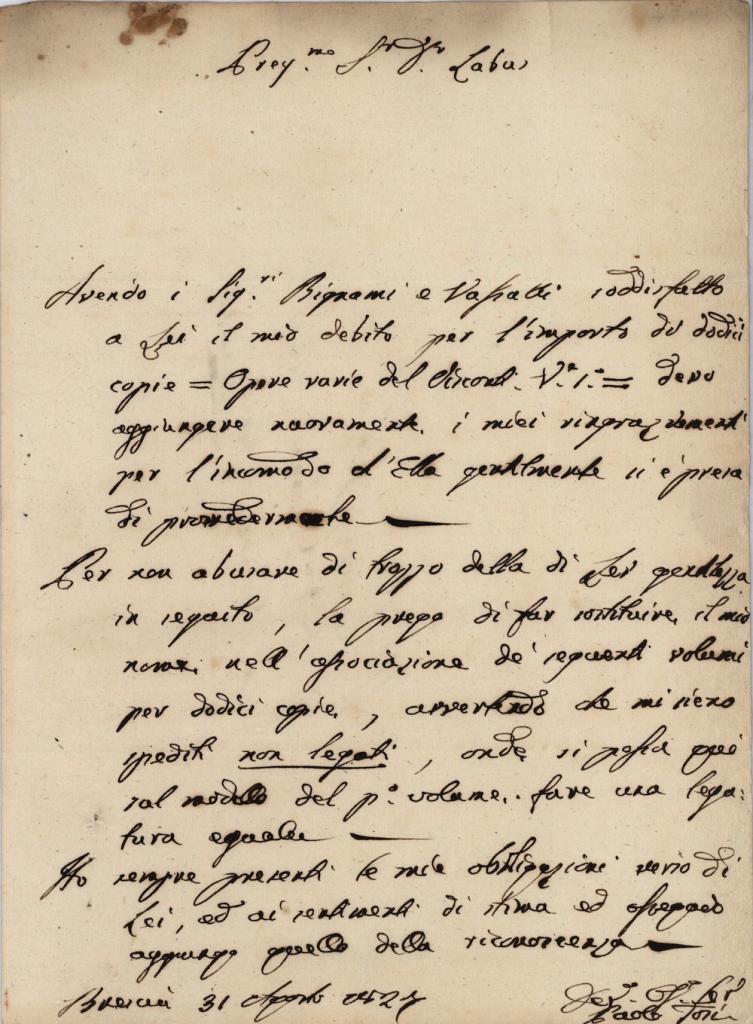 Preg.mo S.r D.r Labus
Avendo i Sig.ri Bignami e Vassalli soddisfatto
a Lei il mio debito per l'importo di dodici
copie = Opere varie del Visconti. V.e 1.o = devo
aggiungere nuovamente i miei ringraziamenti
per l'incomodo ch'Ella gentilmente si è presa
di provvedermele
Per non abusare di troppo della di Lei gentilezza
in seguito, la prego di far sostituire il mio
nome nell'associazione de' seguenti volumi
per dodici copie, avvertendo che mi sieno
spediti non legati, onde si possa qui
sul modello del p.o volume fare una lega-
tura eguale
Ho sempre presenti le mie obbligazioni verso di
Lei, ed ai sentimenti di stima ed ossequio
aggiungo quello della riconoscenza
Brescia 31 Agosto 1827
Paolo Tosi